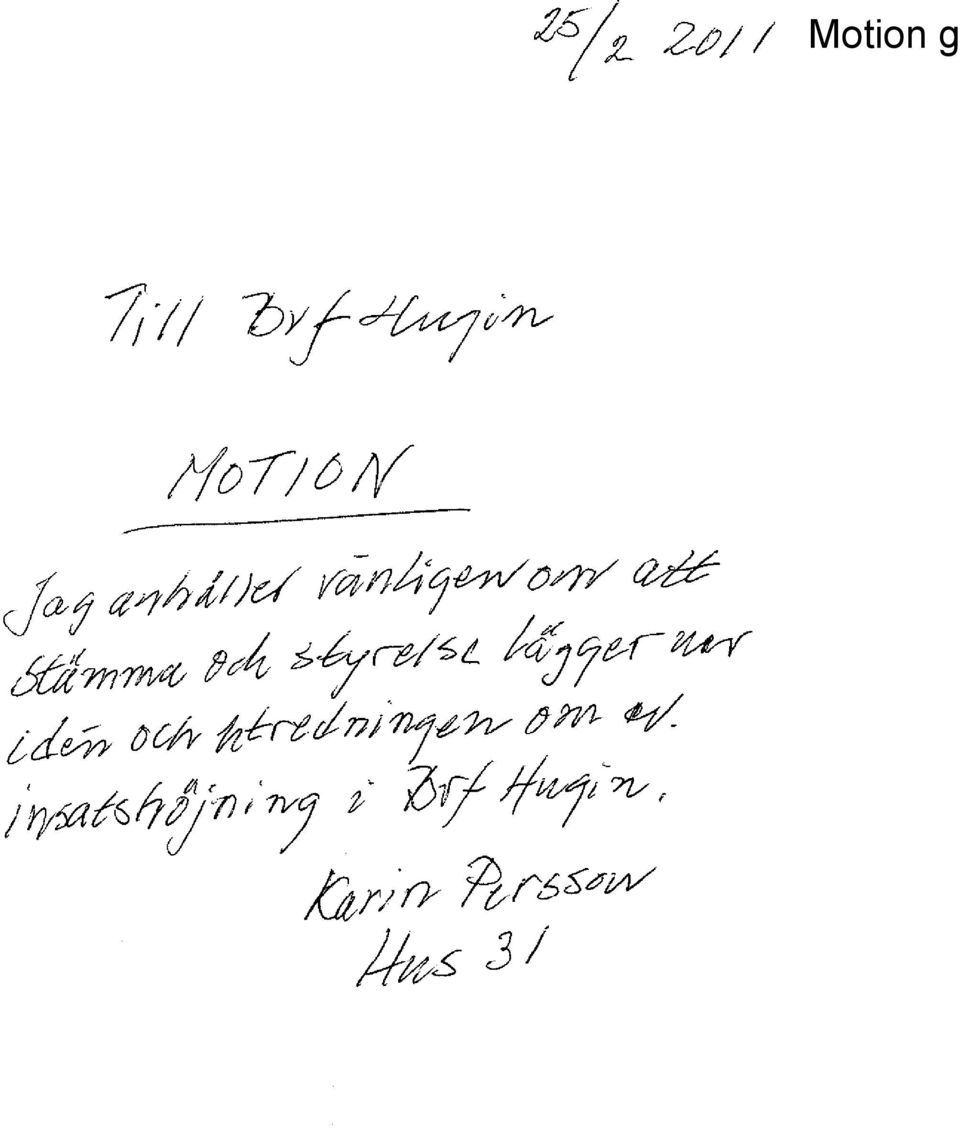 25/2 2011 Motion g
Till Brf Hugin
MOTION
Jag anhåller vänligen om att
stämma och styrelse lägger ner
idén och utredningen om ev.
insatshöjning i Brf Hugin.
Karin Persson
Hus 31